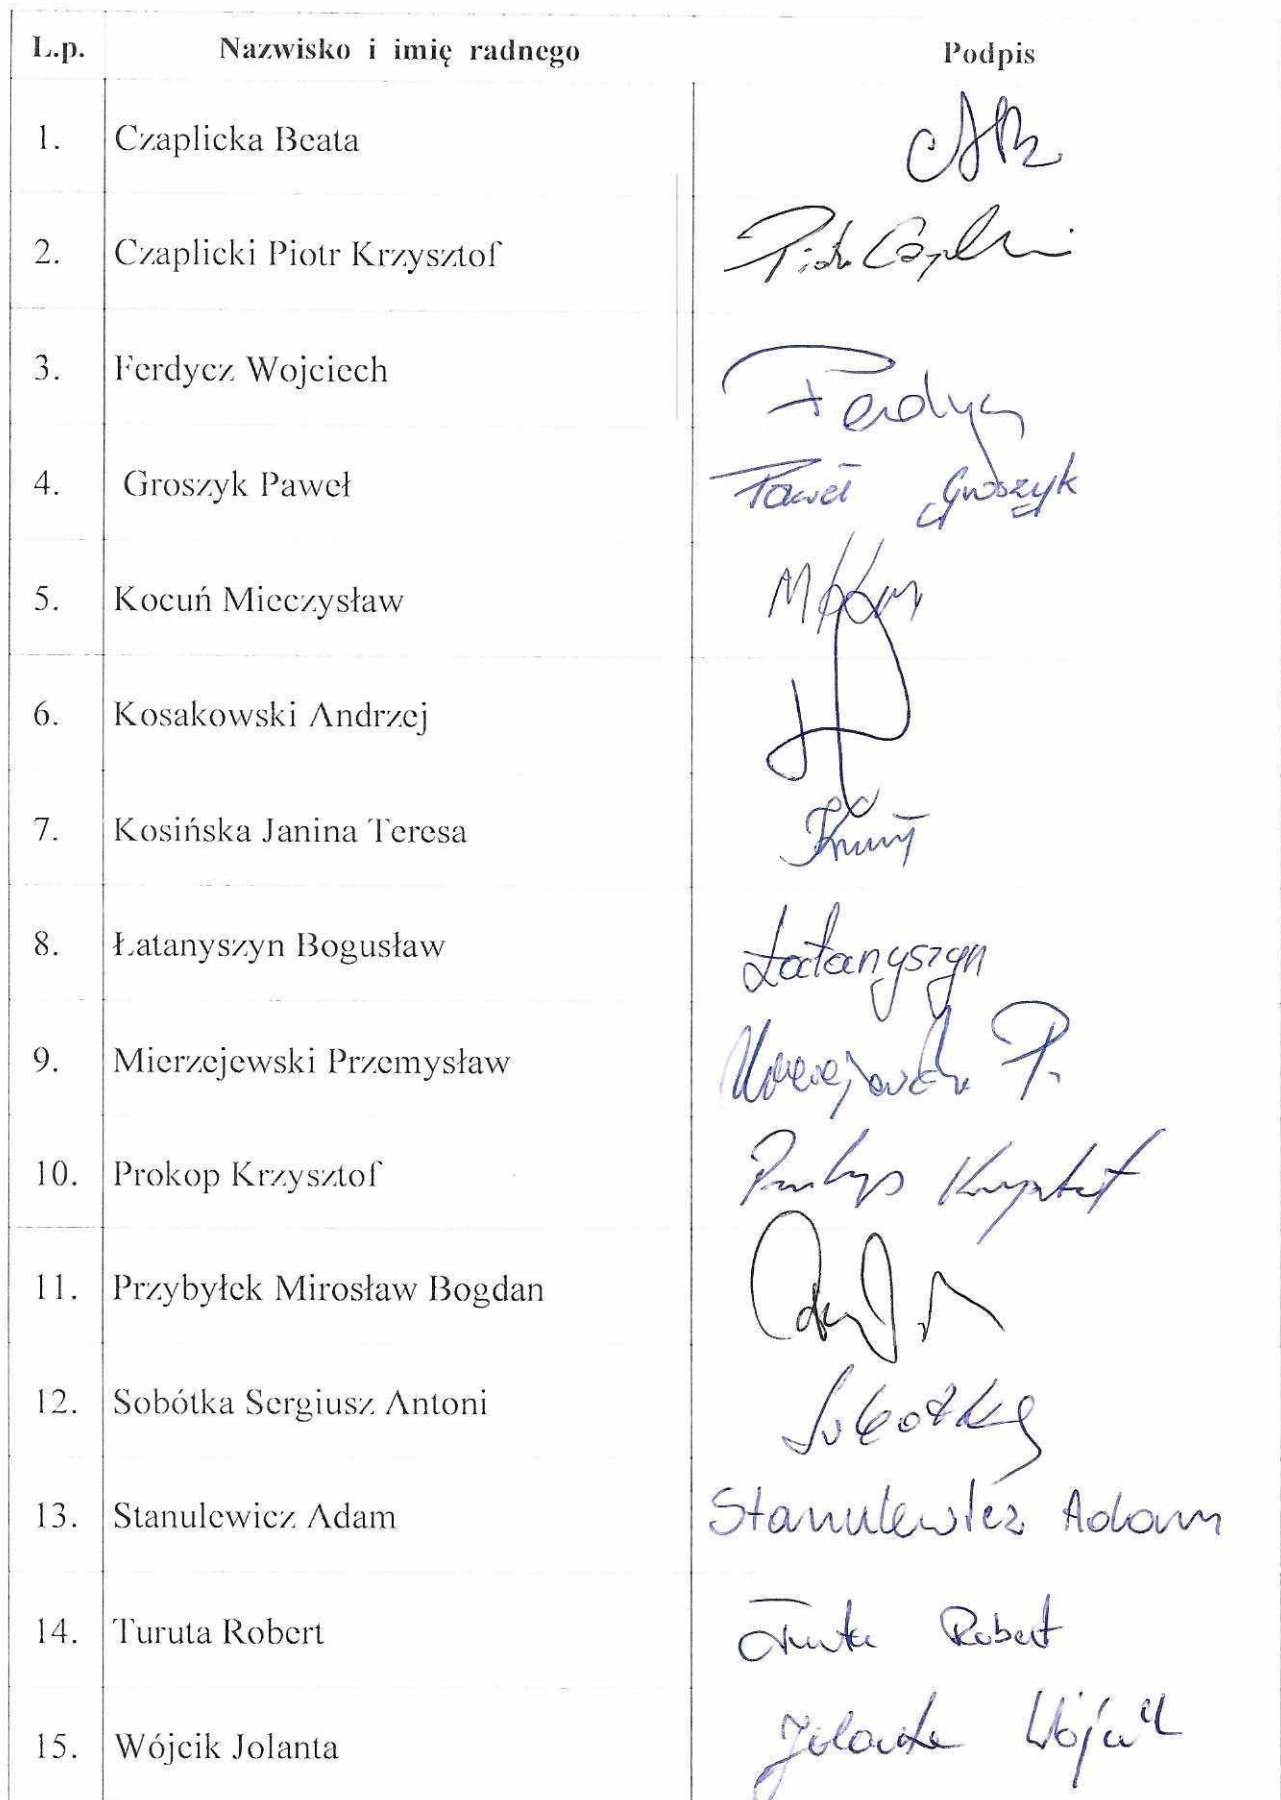 L.p. Nazwisko i imię radnego Podpis
1. Czaplicka Beata
2. Czaplicki Piotr Krzysztof
3. Ferdycz Wojciech Ferdycz
4. Groszyk Paweł Paweł Groszyk
5. Kocuń Mieczysław
6. Kosakowski Andrzej
7. Kosińska Janina Teresa
8. Łatanyszyn Bogusław Łatanyszyn
9. Mierzejewski Przemysław
10. Prokop Krzysztof
11. Przybyłek Mirosław Bogdan
12. Sobótka Sergiusz Antoni
13. Stanulewicz Adam Stanulewicz Adam
14. Turuta Robert Turuta Robert
15. Wójcik Jolanta Jolanta Wójcik